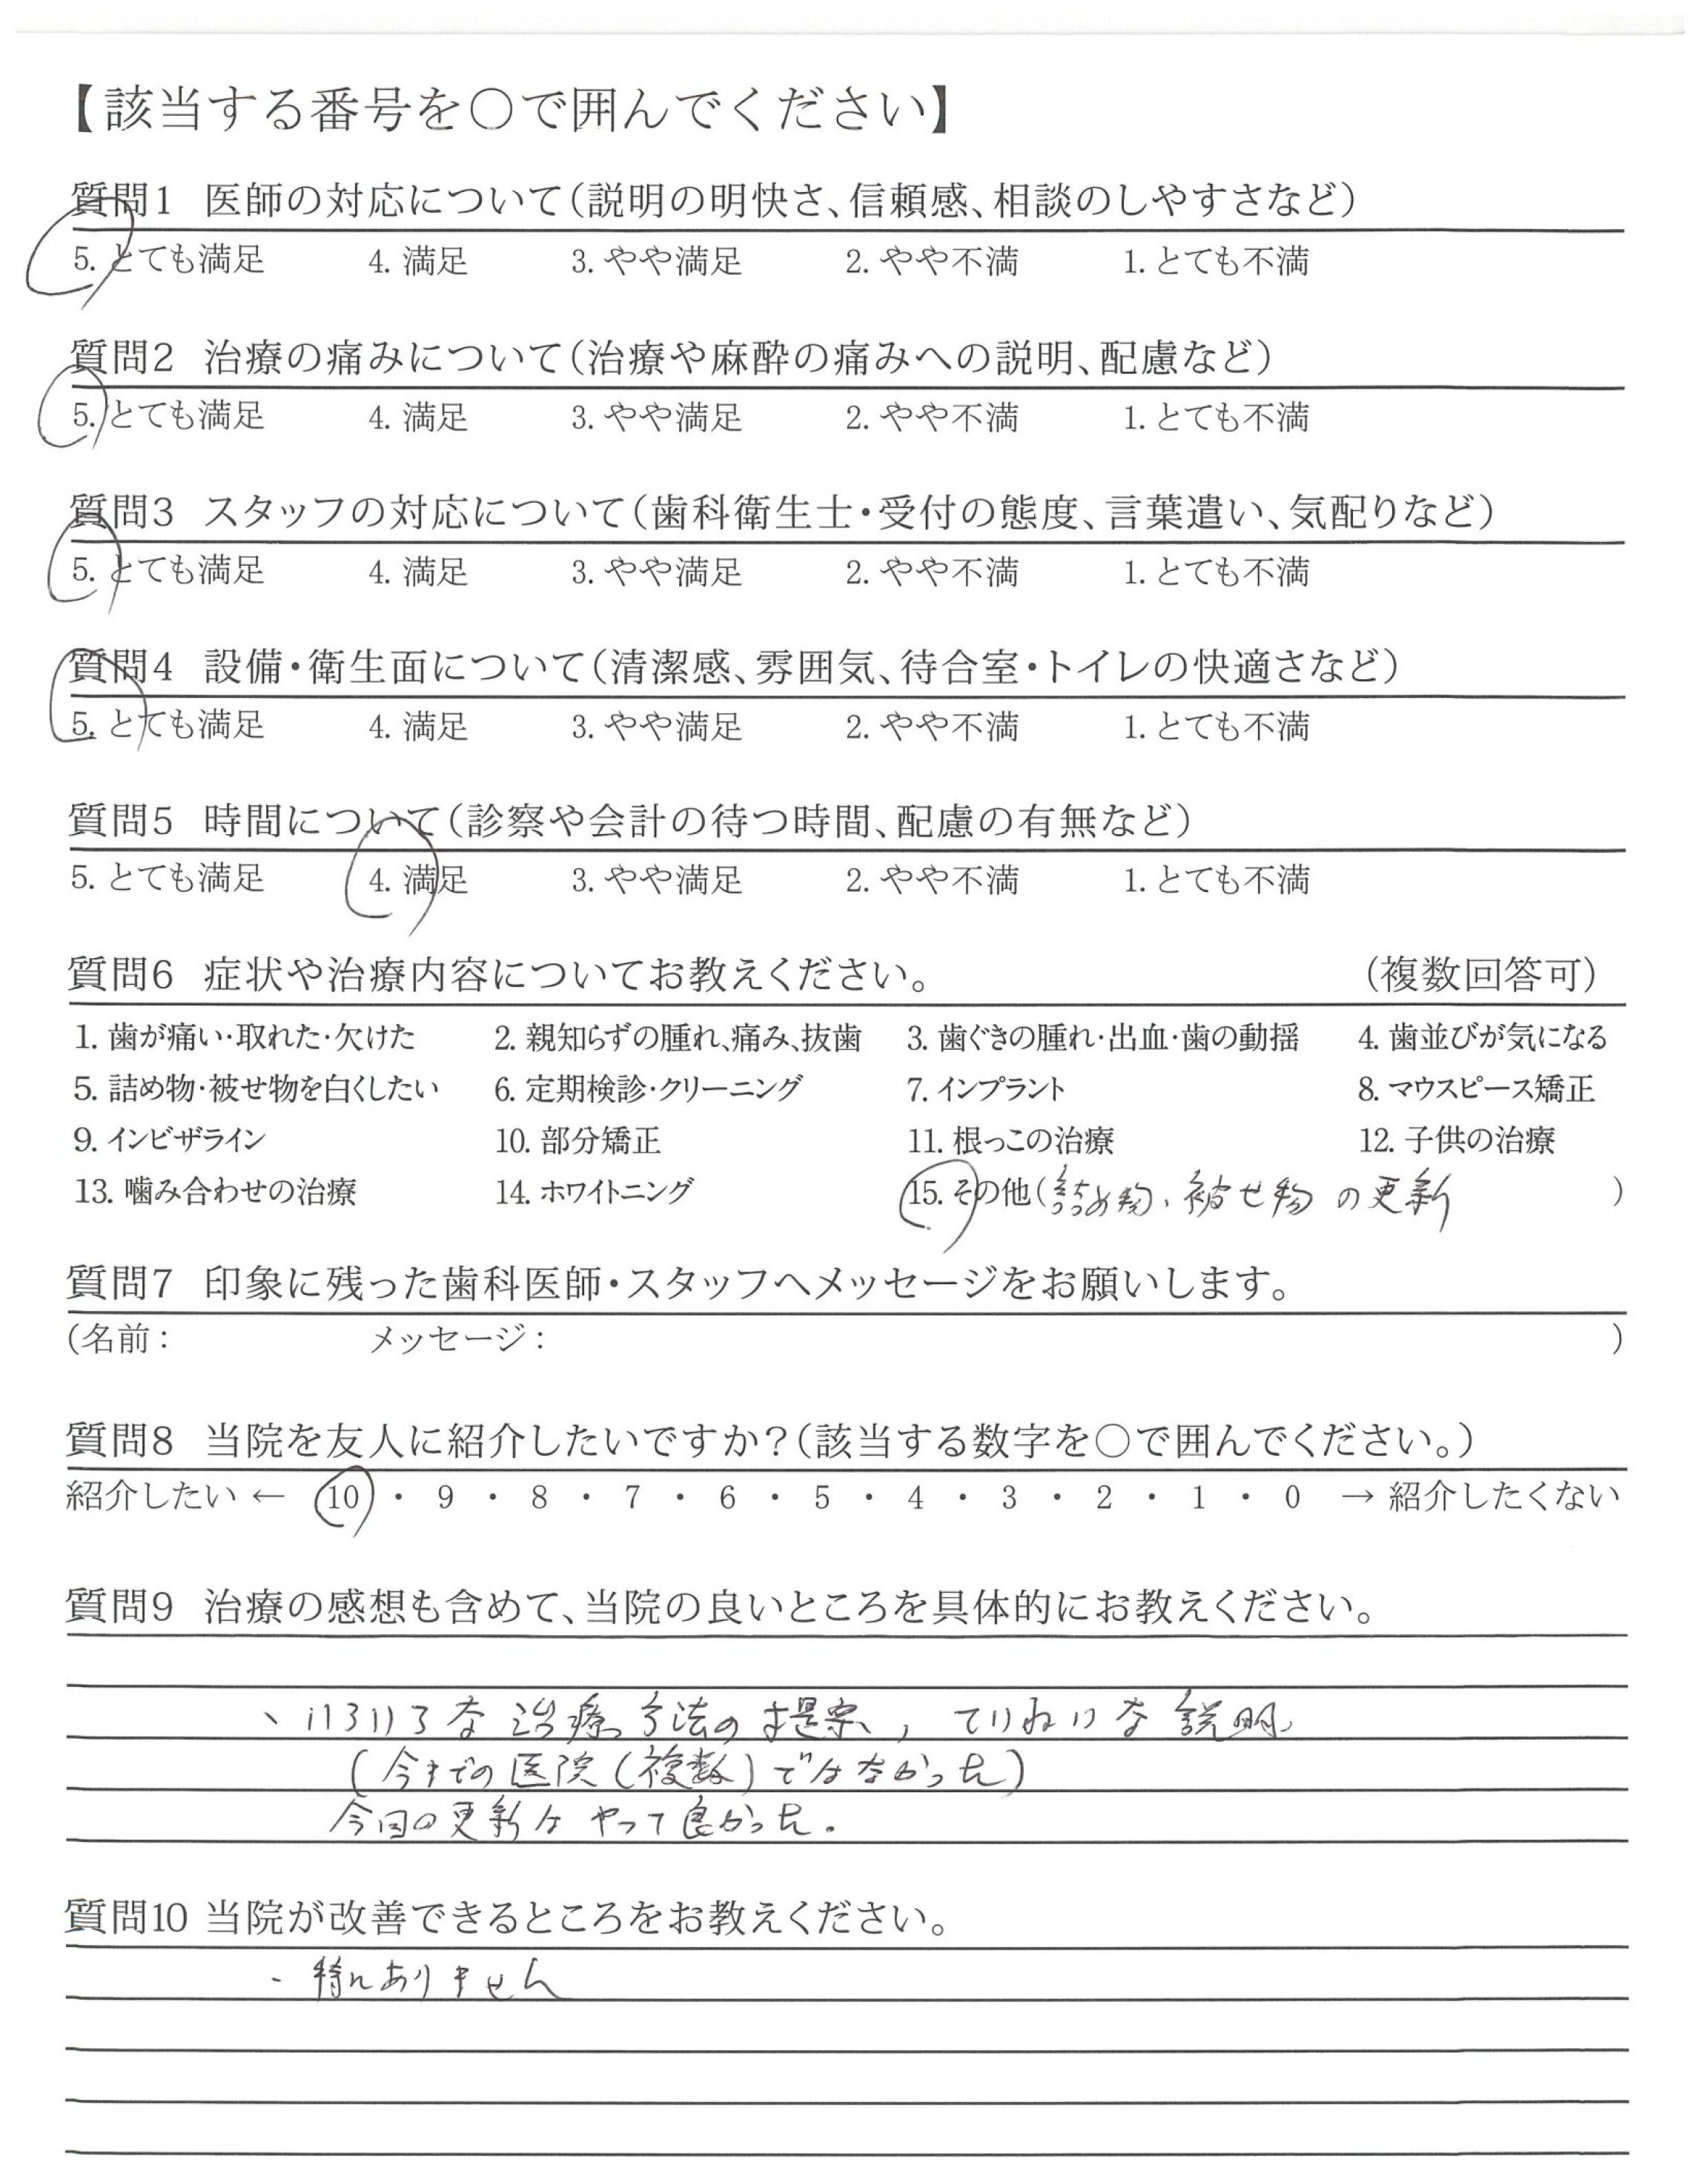 【該当する番号を○で囲んでください】
質問1 医師の対応について(説明の明快さ、信頼感、相談のしやすさなど)
5. とても満足 4. 満足 3. やや満足 2. やや不満 1. とても不満
質問2 治療の痛みについて(治療や麻酔の痛みへの説明、配慮など)
5. とても満足 4. 満足 3. やや満足 2. やや不満 1. とても不満
質問3 スタッフの対応について(歯科衛生士・受付の態度、言葉遣い、気配りなど)
5. とても満足 4. 満足 3. やや満足 2. やや不満 1. とても不満
質問4 設備・衛生面について(清潔感、雰囲気、待合室・トイレの快適さなど)
5. とても満足 4. 満足 3. やや満足 2. やや不満 1. とても不満
質問5 時間について(診察や会計の待つ時間、配慮の有無など)
5. とても満足 4. 満足 3. やや満足 2. やや不満 1. とても不満
質問6 症状や治療内容についてお教えください。 (複数回答可)
1. 歯が痛い・取れた・欠けた 2. 親知らずの腫れ、痛み、抜歯 3. 歯ぐきの腫れ・出血・歯の動揺 4. 歯並びが気になる
5. 詰め物・被せ物を白くしたい 6. 定期検診・クリーニング 7. インプラント 8. マウスピース矯正
9. インビザライン 10. 部分矯正 11. 根っこの治療 12. 子供の治療
13. 噛み合わせの治療 14. ホワイトニング 15. その他(詰め物、被せ物の更新 )
質問7 印象に残った歯科医師・スタッフへメッセージをお願いします。
(名前: メッセージ: )
質問8 当院を友人に紹介したいですか?(該当する数字を○で囲んでください。)
紹介したい ← 10 ・ 9 ・ 8 ・ 7 ・ 6 ・ 5 ・ 4 ・ 3 ・ 2 ・ 1 ・ 0 → 紹介したくない
質問9 治療の感想も含めて、当院の良いところを具体的にお教えください。
、いろいろな治療方法の提案、ていねいな説明
(今までの医院(複数)ではなかった)
今回の更新はやって良かった。
質問10 当院が改善できるところをお教えください。
- 特にありません